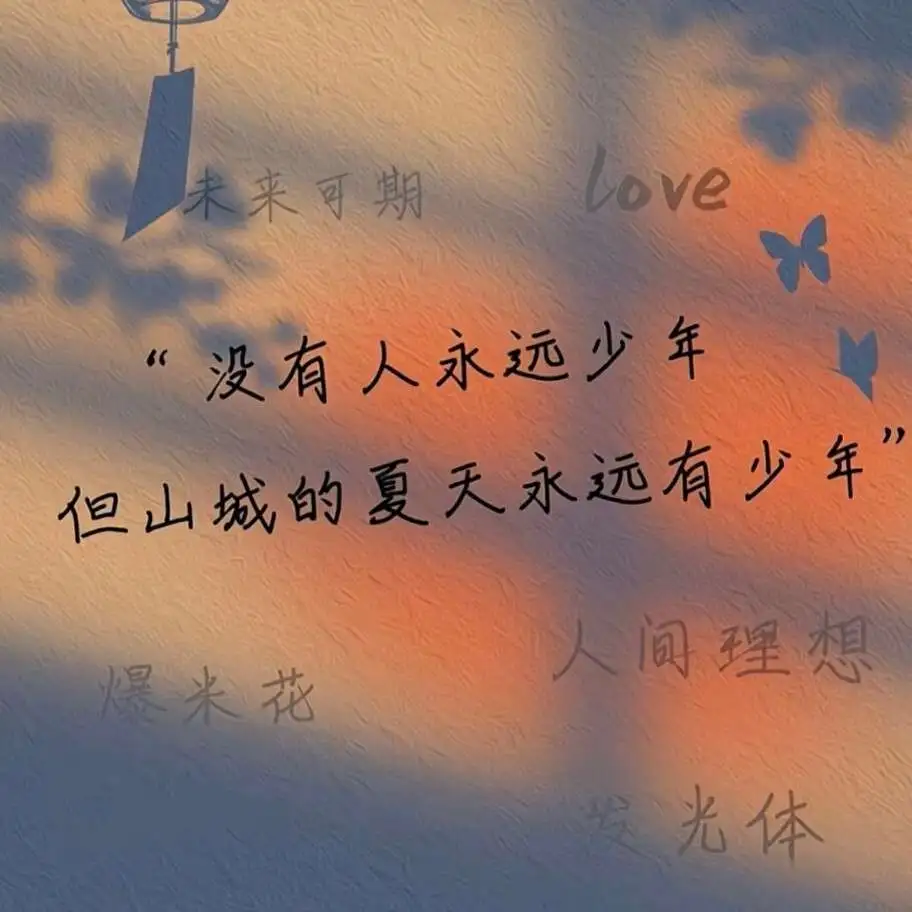 未来可期
love
“没有人永远少年
但山城的夏天永远有少年”
人间理想
爆米花
发光体